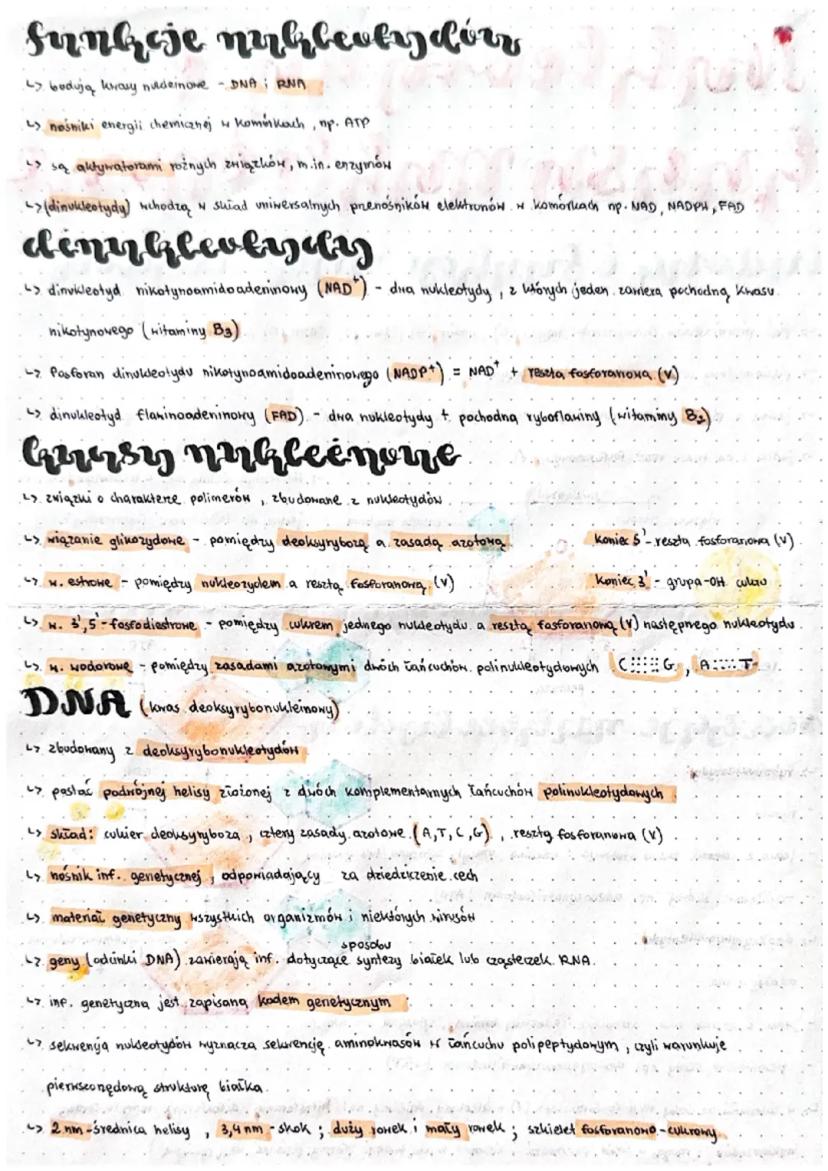 funkcje nukleotydów
↳ budują kwasy nukleinowe - DNA i RNA
↳ nośniki energii chemicznej w komórkach, np. ATP
↳ są aktywatorami różnych związków, m.in. enzymów
↳ (dinukleotydy) wchodzą w skład uniwersalnych przenośników elektronów w komórkach np. NAD, NADPH, FAD
dinukleotydy
↳ dinukleotyd nikotynoamidoadeninowy (NAD⁺) - dwa nukleotydy, z których jeden zawiera pochodną kwasu
nikotynowego (witaminy B₃)
↳ fosforan dinukleotydu nikotynoamidoadeninowego (NADP⁺) = NAD⁺ + reszta fosforanowa (V)
↳ dinukleotyd flawinoadeninowy (FAD) - dwa nukleotydy + pochodna ryboflawiny (witaminy B₂)
kwasy nukleinowe
↳ związki o charakterze polimerów, zbudowane z nukleotydów
↳ wiązanie glikozydowe - pomiędzy deoksyrybozą a zasadą azotową koniec 5' - reszta fosforanowa (V)
↳ w. estrowe - pomiędzy nukleozydem a resztą fosforanową (V) koniec 3' - grupa -OH cukru
↳ w. 3',5'-fosfodiestrowe - pomiędzy cukrem jednego nukleotydu a resztą fosforanową (V) następnego nukleotydu
↳ w. wodorowe - pomiędzy zasadami azotowymi dwóch łańcuchów polinukleotydowych C⋮⋮⋮G, A⋮⋮T
DNA (kwas deoksyrybonukleinowy)
↳ zbudowany z deoksyrybonukleotydów
↳ postać podwójnej helisy złożonej z dwóch komplementarnych łańcuchów polinukleotydowych
↳ skład: cukier deoksyryboza, cztery zasady azotowe (A,T,C,G), reszta fosforanowa (V)
↳ nośnik inf. genetycznej, odpowiadający za dziedziczenie cech
↳ materiał genetyczny wszystkich organizmów i niektórych wirusów
sposobu
↳ geny (odcinki DNA) zawierają inf. dotyczące syntezy białek lub cząsteczek RNA
↳ inf. genetyczna jest zapisana kodem genetycznym
↳ sekwencja nukleotydów wyznacza sekwencję aminokwasów w łańcuchu polipeptydowym, czyli warunkuje
pierwszorzędową strukturę białka
↳ 2 nm - średnica helisy, 3,4 nm - skok; duży rowek i mały rowek; szkielet fosforanowo-cukrowy